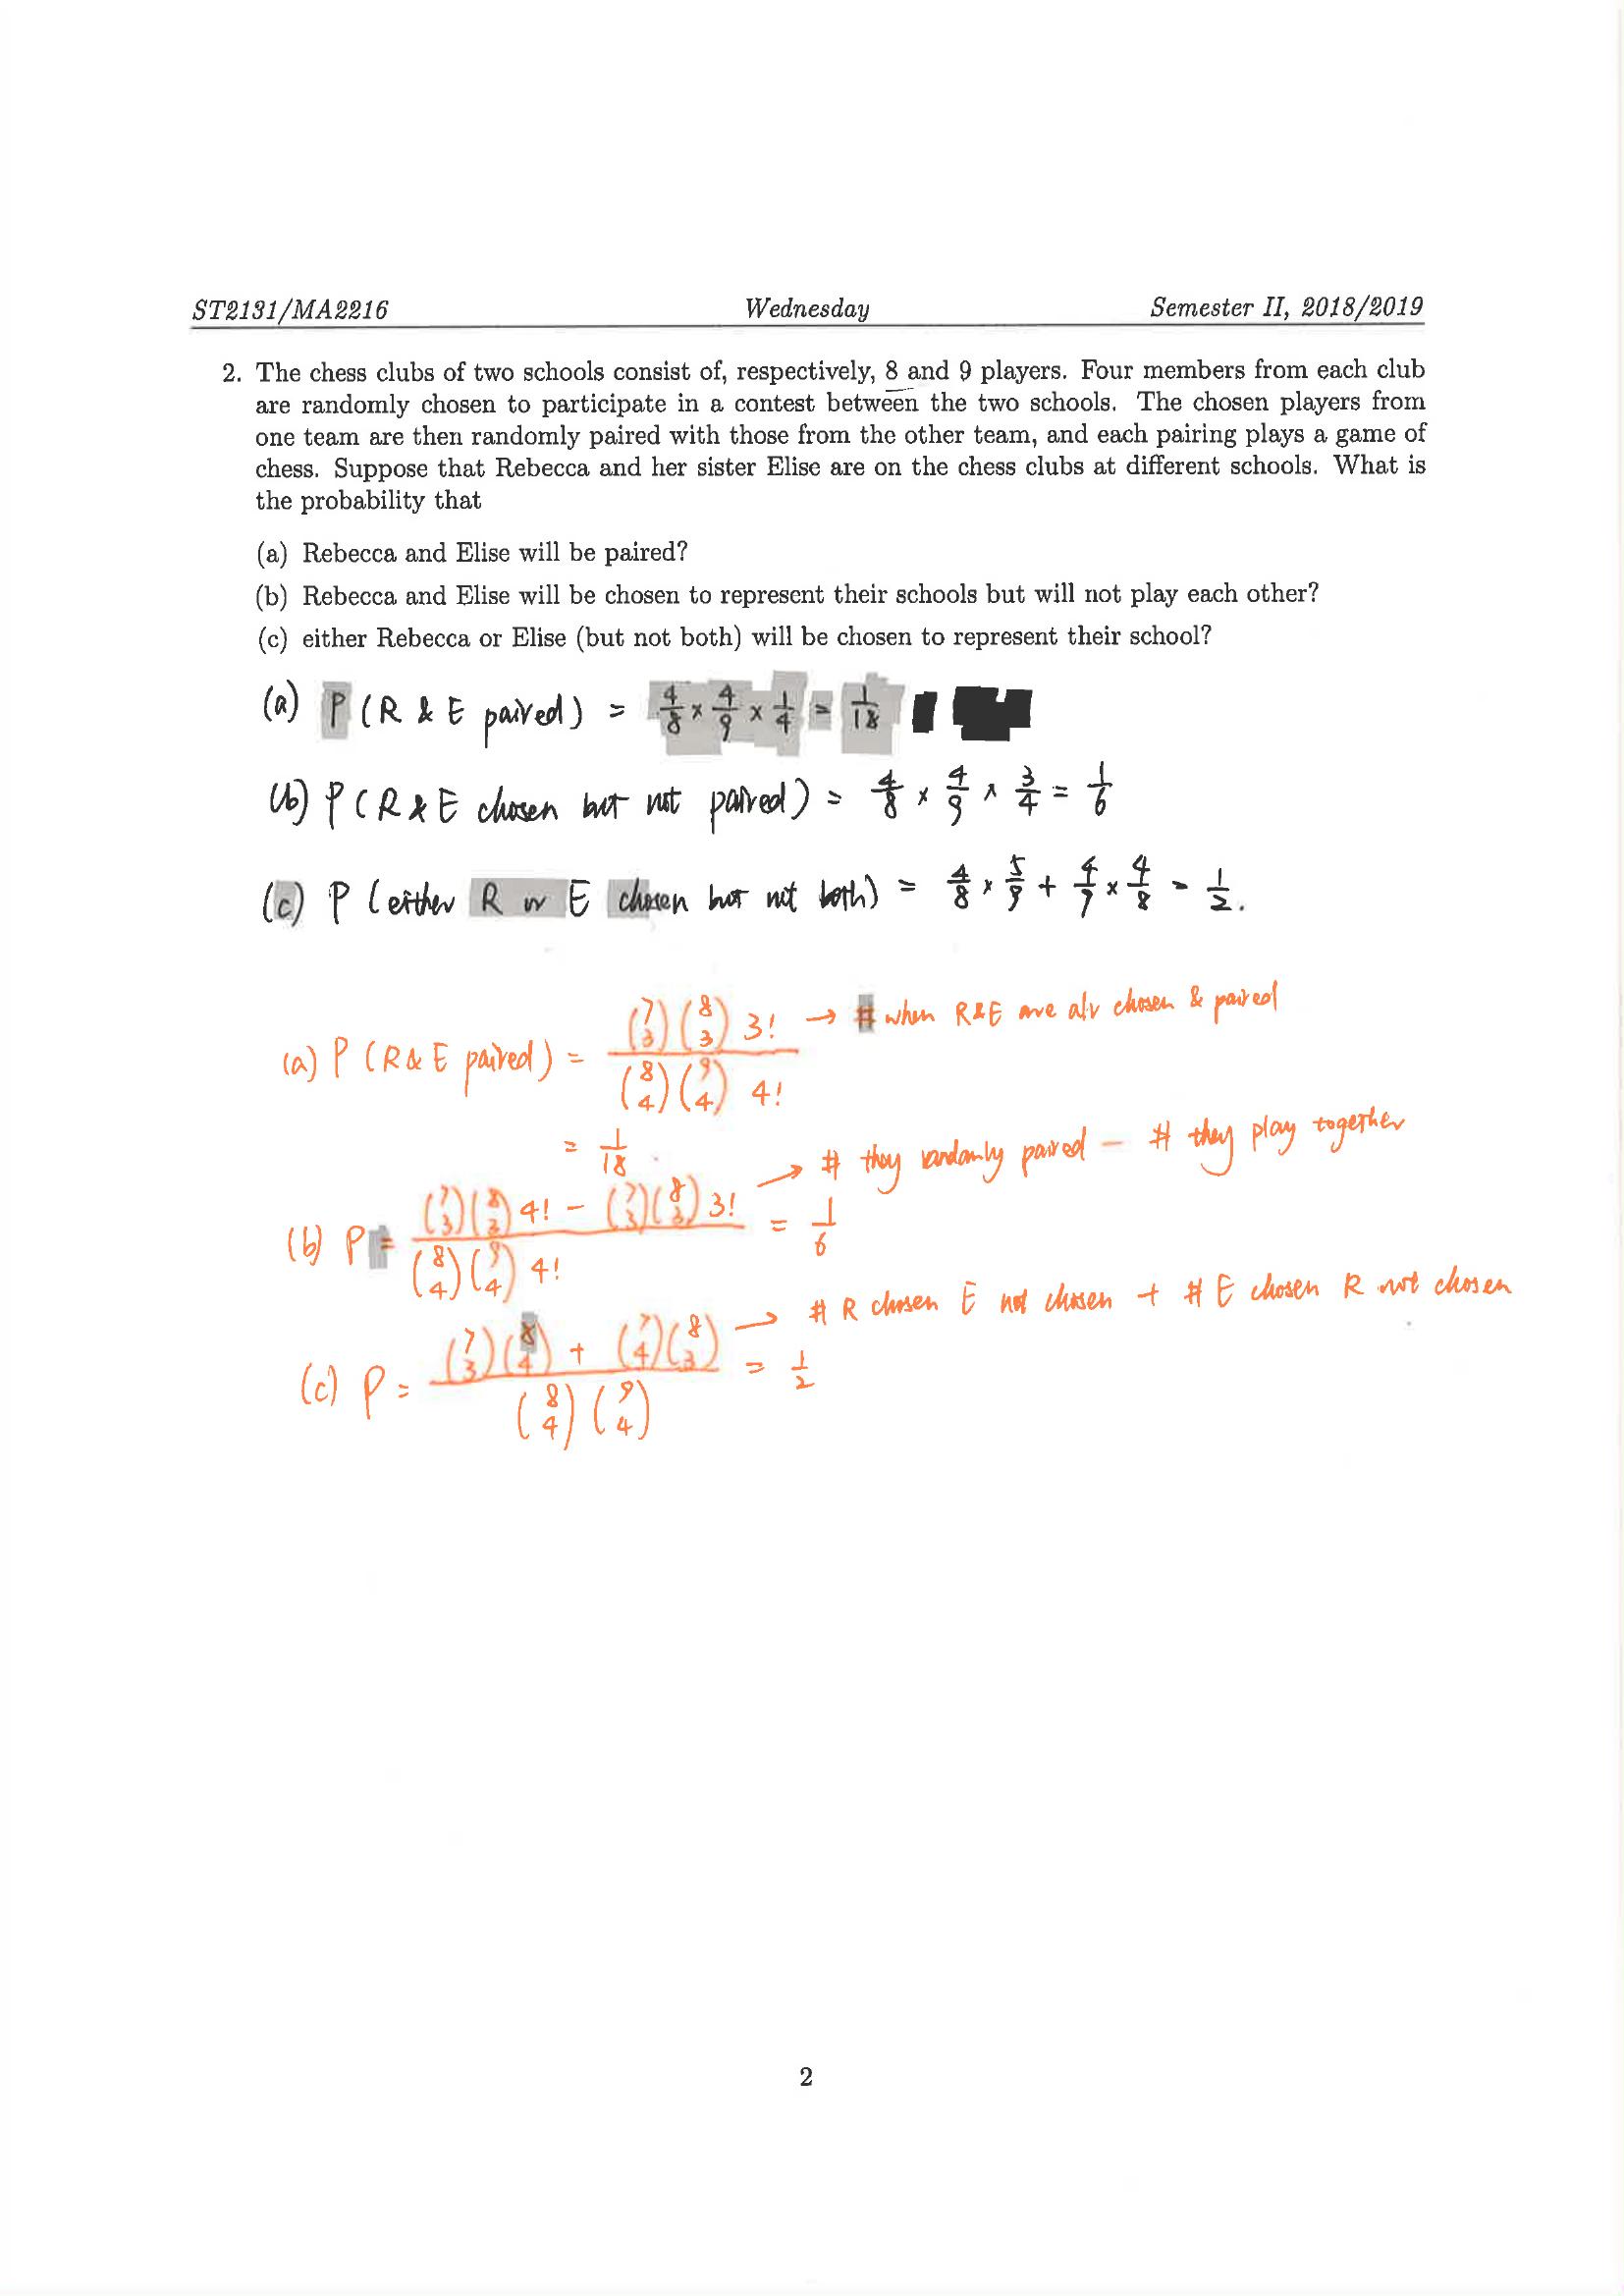 ST2131/MA2216 Wednesday Semester II, 2018/2019
2. The chess clubs of two schools consist of, respectively, 8 and 9 players. Four members from each club
are randomly chosen to participate in a contest between the two schools. The chosen players from
one team are then randomly paired with those from the other team, and each pairing plays a game of
chess. Suppose that Rebecca and her sister Elise are on the chess clubs at different schools. What is
the probability that
(a) Rebecca and Elise will be paired?
(b) Rebecca and Elise will be chosen to represent their schools but will not play each other?
(c) either Rebecca or Elise (but not both) will be chosen to represent their school?
(a) P (R & E paired) = 4/8 × 4/9 × 1/4 = 1/18
(b) P (R & E chosen but not paired) = 4/8 × 4/9 × 3/4 = 1/6
(c) P (either R or E chosen but not both) = 4/8 × 5/9 + 4/9 × 4/8 = 1/2.
(a) P (R & E paired) = (7 3)(8 3) 3! / (8 4)(9 4) 4! → # when R&E are alr chosen & paired
= 1/18.
(b) P = (7 3)(8 3) 4! - (7 3)(8 3) 3! / (8 4)(9 4) 4! = 1/6 → # they randomly paired - # they play together
(c) P = (7 3)(8 4) + (7 4)(8 3) / (8 4)(9 4) = 1/2 → # R chosen E not chosen + # E chosen R not chosen
2